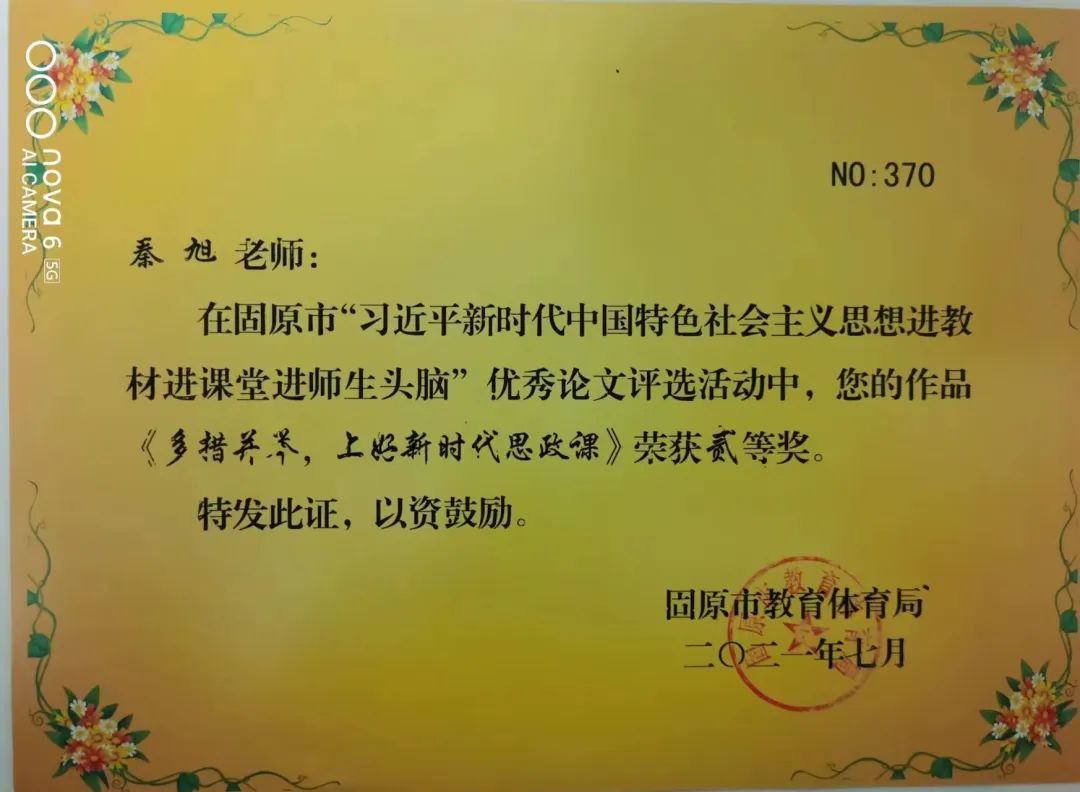 NO:370
秦旭 老师：
在固原市“习近平新时代中国特色社会主义思想进教
材进课堂进师生头脑”优秀论文评选活动中，您的作品
《多措并举，上好新时代思政课》荣获贰等奖。
特发此证，以资鼓励。
固原市教育体育局
二〇二一年七月
固原市教育体育局
nova 6 5G
AI CAMERA